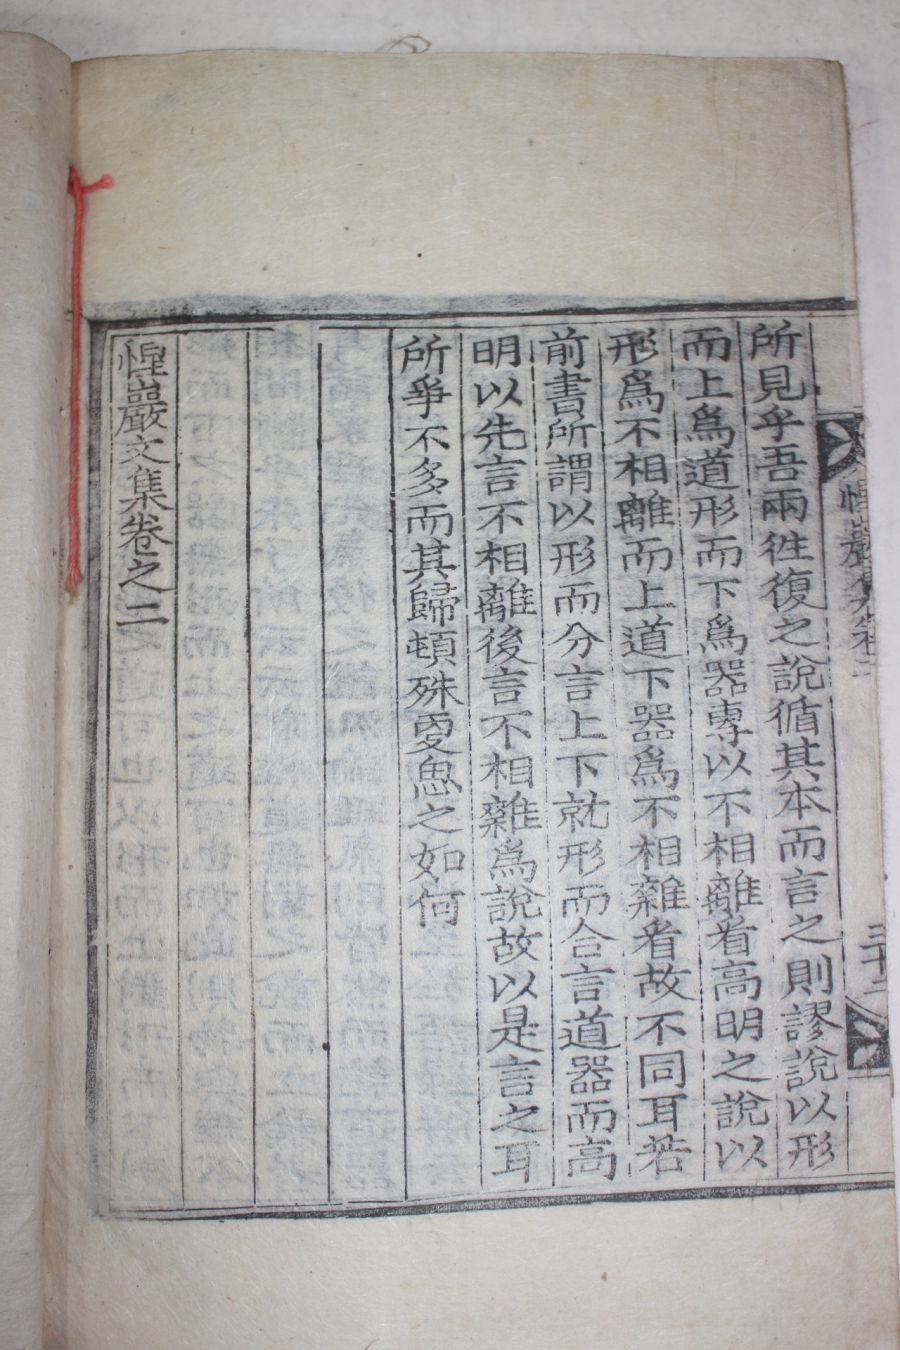 惺巖文集卷二
三十二
所見乎吾兩徃復之說循其本而言之則謬說以形
而上爲道形而下爲器專以不相離看高明之說以
形爲不相離而上道下器爲不相雜看故不同耳若
前書所謂以形而分言上下就形而合言道器而高
明以先言不相離後言不相雜爲說故以是言之耳
所爭不多而其歸頓殊更之如何
惺巖文集卷之二